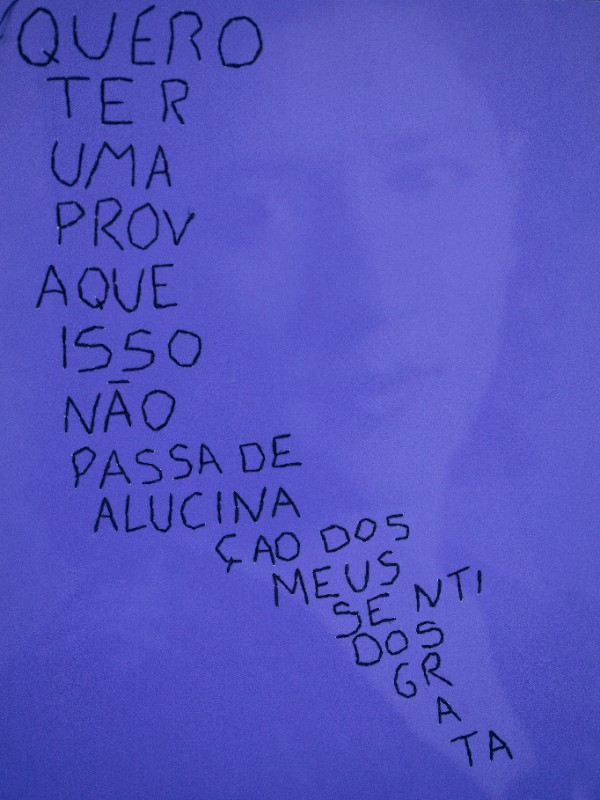 QUERO
TER
UMA
PROV
AQUE
ISSO
NÃO
PASSA DE
ALUCINA
ÇAO DOS
MEUS
SENTI
DOS
GR
A
TA